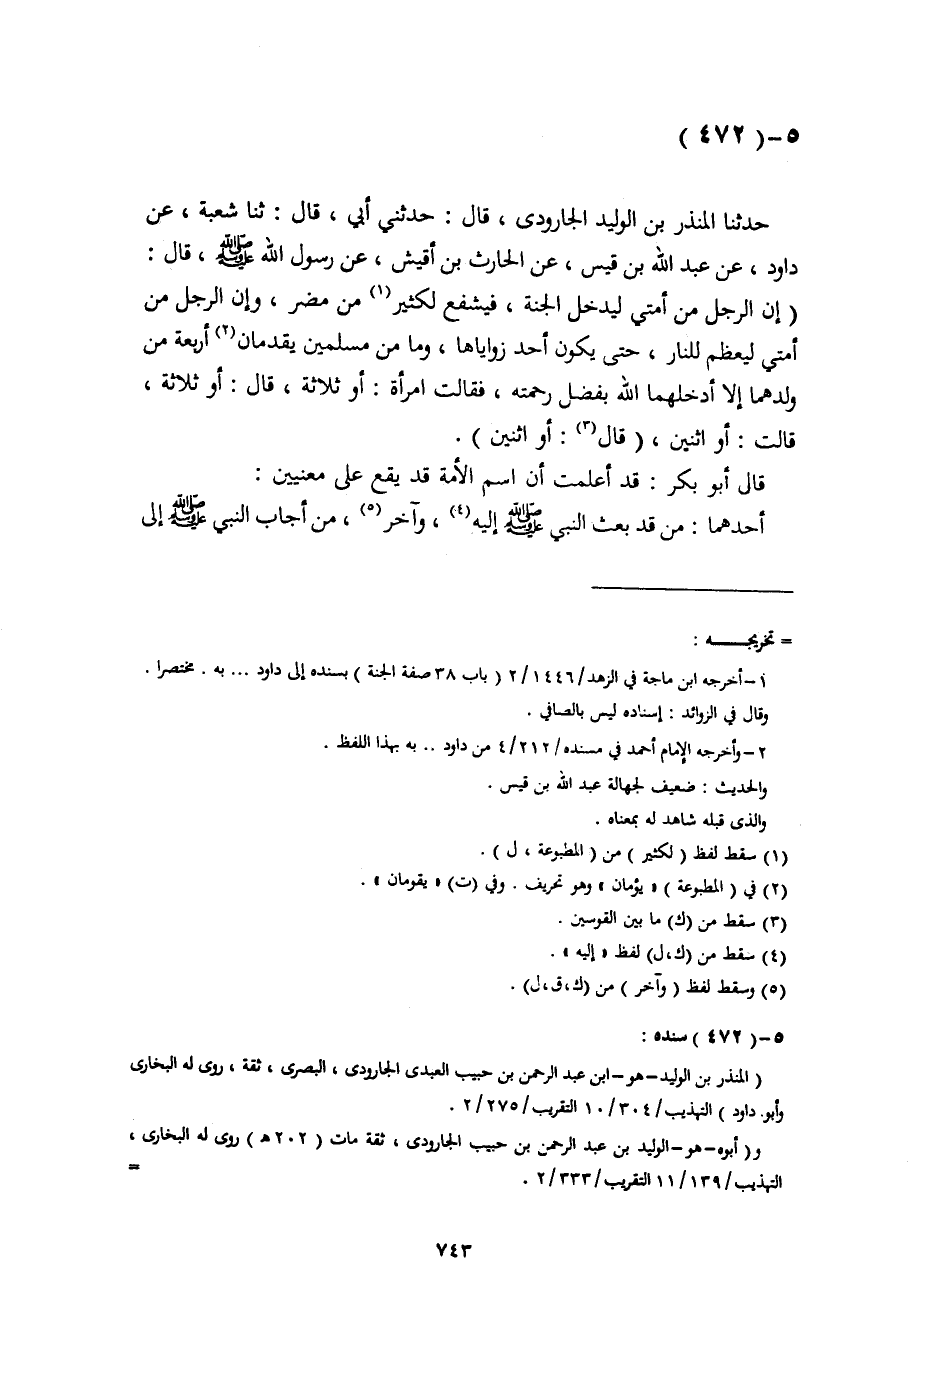 ٥-( ٤٧٢ )
حدثنا المنذر بن الوليد الجارودى ، قال : حدثني أبي ، قال : ثنا شعبة ، عن
داود ، عن عبد الله بن قيس ، عن الحارث بن أقيش ، عن رسول الله ﷺ ، قال :
( إن الرجل من أمتي ليدخل الجنة ، فيشفع لكثير(١) من مضر ، وإن الرجل من
أمتي ليعظم للنار ، حتى يكون أحد زواياها ، وما من مسلمين يقدمان(٢) أربعة من
ولدهما إلا أدخلهما الله بفضل رحمته ، فقالت امرأة : أو ثلاثة ، قال : أو ثلاثة ،
قالت : أو اثنين ، ( قال(٣) : أو اثنين ) .
قال أبو بكر : قد أعلمت أن اسم الأمة قد يقع على معنيين :
أحدهما : من قد بعث النبي ﷺ إليه(٤) ، وآخر(٥) ، من أجاب النبي ﷺ إلى
= تخريجـــه :
١-أخرجه ابن ماجة في الزهد/١٤٤٦/٢ ( باب ٣٨ صفة الجنة ) بسنده إلى داود ... به . مختصرا .
وقال في الزوائد : إسناده ليس بالصافي .
٢-وأخرجه الإمام أحمد في مسنده/٢١٢/٤ من داود .. به بهذا اللفظ .
والحديث : ضعيف لجهالة عبد الله بن قيس .
والذى قبله شاهد له بمعناه .
(١) سقط لفظ ( لكثير ) من ( المطبوعة ، ل ) .
(٢) في ( المطبوعة ) « يؤمان » وهو تحريف . وفي (ت) « يقومان » .
(٣) سقط من (ك) ما بين القوسين .
(٤) سقط من (ك،ل) لفظ « إليه » .
(٥) وسقط لفظ ( وآخر ) من (ك،ق،ل) .
٥-( ٤٧٢ ) سنده :
( المنذر بن الوليد-هو-ابن عبد الرحمن بن حبيب العبدى الجارودى ، البصرى ، ثقة ، روى له البخارى
وأبو. داود ) التهذيب/٣٠٤/١٠ التقريب/٢٧٥/٢ .
و( أبوه-هو-الوليد بن عبد الرحمن بن حبيب الجارودى ، ثقة مات ( ٢٠٢ هـ ) روى له البخارى ،
التهذيب/١٣٩/١١ التقريب/٣٣٣/٢ . =
٧٤٣